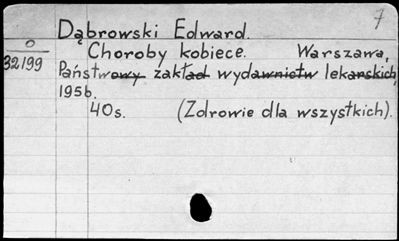 7
Dąbrowski Edward.
O
32199
Choroby kobiece. Warszawa,
Państwowy zakład wydawnictw lekarskich,
1956.
40s. (Zdrowie dla wszystkich).